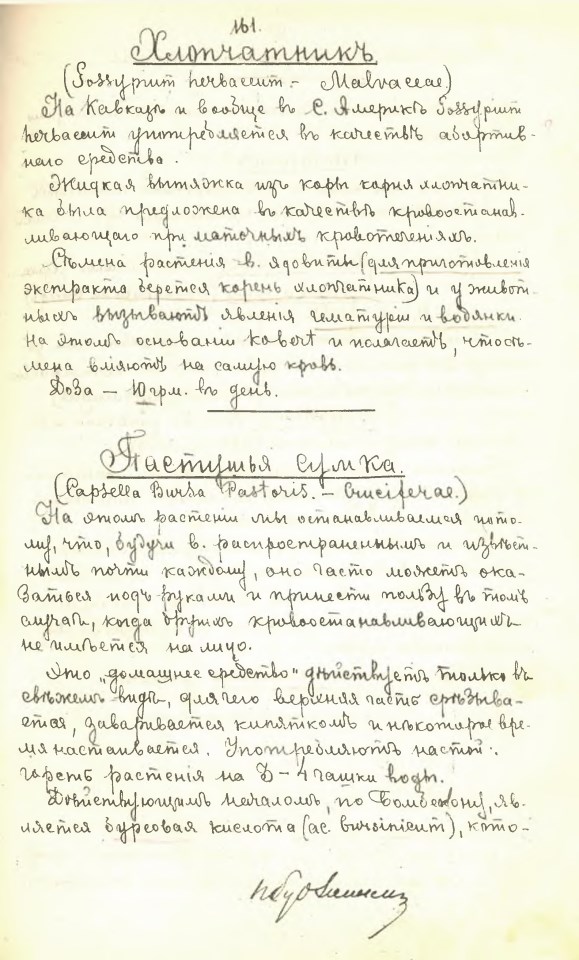 161.
Хлопчатникъ.
(Gossypium herbaceum. – Malvaceae.)
На Кавказѣ и вообще въ С. Америкѣ Gossypium
herbaceum употребляется въ качествѣ абортив-
наго средства.
Жидкая вытяжка изъ коры корня хлопчатни-
ка была предложена въ качествѣ кровоостанав-
ливающаго при маточныхъ кровотеченіяхъ.
Сѣмена растенія в. ядовиты (для приготовленія
экстракта берется корень хлопчатника) и у живот-
ныхъ вызываютъ явленія гематуріи и водянки.
На этомъ основаніи Kobert и полагаетъ, что сѣ-
мена вліяютъ на самую кровь.
Доза – 10 грм. въ день.
Пастушья сумка.
(Capsella Bursa Pastoris. – Cruciferae.)
На этомъ растеніи мы останавливаемся пото-
му, что, будучи в. распространеннымъ и извѣст-
нымъ почти каждому, оно часто можетъ ока-
заться подъ руками и принести пользу въ томъ
случаѣ, когда другихъ кровоостанавливающихъ
не имѣется на лицо.
Это „домашнее средство" дѣйствуетъ только въ
свѣжемъ видѣ, для чего верхняя часть срѣзыва-
ется, заваривается кипяткомъ и нѣкоторое вре-
мя настаивается. Употребляютъ настой:
горсть растенія на 3–4 чашки воды.
Дѣйствующимъ началомъ, по Бомбелону, яв-
ляется бурсовая кислота (ac. bursinicum), кото-